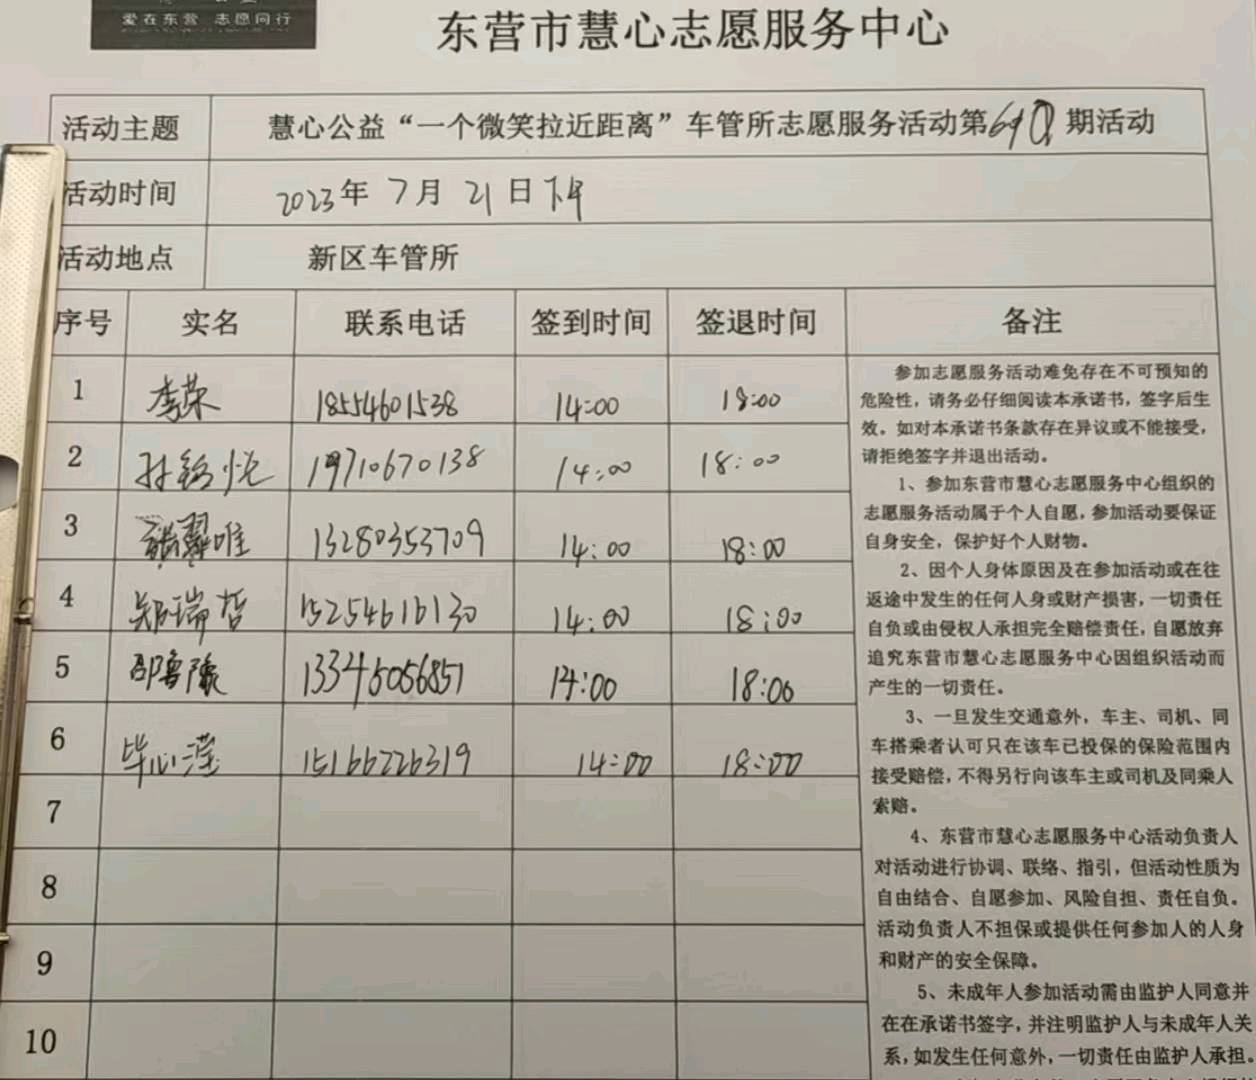 爱在东营 志愿同行
东营市慧心志愿服务中心
活动主题 慧心公益“一个微笑拉近距离”车管所志愿服务活动第690期活动
活动时间 2023年 7月 21日下午
活动地点 新区车管所
序号 实名 联系电话 签到时间 签退时间 备注
1 李荣 18554601538 14:00 18:00
2 孙 19710670138 14:00 18:00
3 张翠唯 13280353709 14:00 18:00
4 郑瑞哲 15254616130 14:00 18:00
5 邵鲁豫 13345056851 14:00 18:00
6 毕心滢 15166226319 14:00 18:00
7
8
9
10
参加志愿服务活动难免存在不可预知的
危险性，请务必仔细阅读本承诺书，签字后生
效。如对本承诺书条款存在异议或不能接受，
请拒绝签字并退出活动。
1、参加东营市慧心志愿服务中心组织的
志愿服务活动属于个人自愿，参加活动要保证
自身安全，保护好个人财物。
2、因个人身体原因及在参加活动或在往
返途中发生的任何人身或财产损害，一切责任
自负或由侵权人承担完全赔偿责任，自愿放弃
追究东营市慧心志愿服务中心因组织活动而
产生的一切责任。
3、一旦发生交通意外，车主、司机、同
车搭乘者认可只在该车已投保的保险范围内
接受赔偿，不得另行向该车主或司机及同乘人
索赔。
4、东营市慧心志愿服务中心活动负责人
对活动进行协调、联络、指引，但活动性质为
自由结合、自愿参加、风险自担、责任自负。
活动负责人不担保或提供任何参加人的人身
和财产的安全保障。
5、未成年人参加活动需由监护人同意并
在在承诺书签字，并注明监护人与未成年人关
系，如发生任何意外，一切责任由监护人承担。